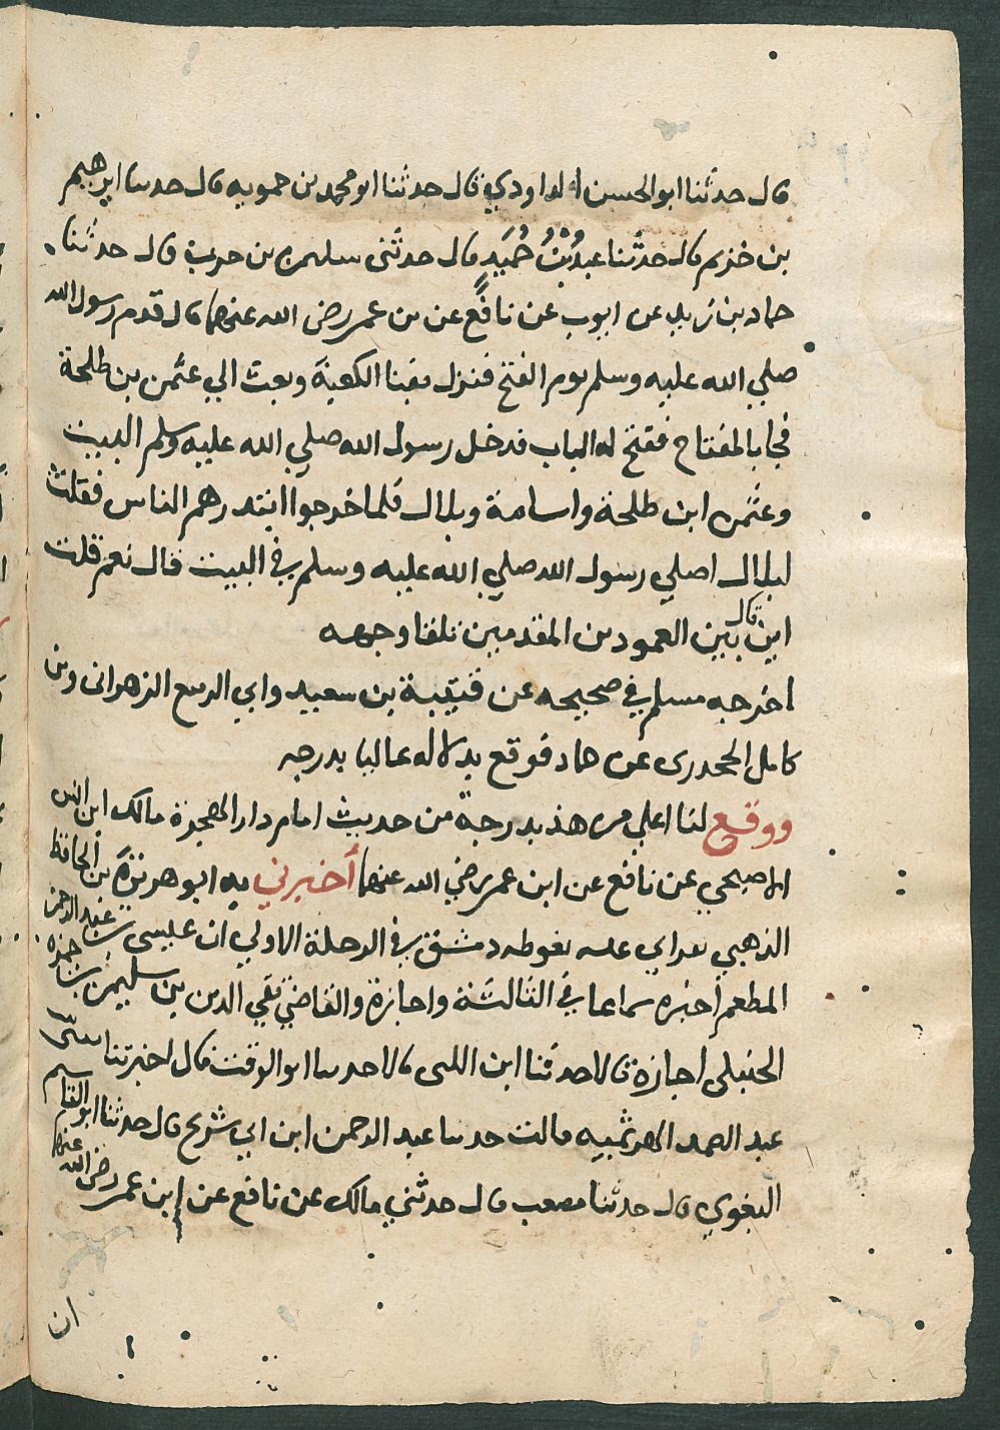 قال حدثنا ابو الحسن الداودي قال حدثنا ابو محمد بن حمويه قال حدسا ابرهيم
بن خزيم قال حدثنا عبدُ بْنُ حُمَيدٍ قال حدثنى سليمن بن حرب قال حدثنا
حماد بن زيد عن ايوب عن نافع عن بن عمر رضى الله عنهما قال قدم رسول الله
صلي الله عليه وسلم يوم الفتح فنزل بفنا الكعبة وبعث الي عثمن بن طلحة
فجا بالمفتاح ففتح له الباب فدخل رسول الله صلي الله عليه وسلم البيت
وعثمن ابن طلحة واسامة وبلال فلما خرجوا ابتدرهم الناس فقلت
لبلال اصلي رسول الله صلي الله عليه وسلم في البيت قال نعم قلت
اين قال بين العمودين المقدمين تلقا وجهه
اخرجه مسلم في صحيحه عن قتيبة بن سعيد وابي الربيع الزهرانى وبن
كامل الجحدرى عن حماد فوقع بدلا له عاليا بدرجه
ووقع لنا اعلي من هذ بدرجة من حديث امام دار الهجرة مالك ابن انس
الاصبحي عن نافع عن ابن عمر رضي الله عنهما أخبرني به ابو هريرة بن الحافظ
الذهبي بقراي عليه بغوطه دمشق في الرحلة الاولي ان عيسى بن عبد الرحمن
المطعم أخبره سماعا في الثالثة واجازة والقاضي تقي الدين بن سليمن بن حمزه
الحنبلى اجازة قالا حدثنا ابن اللتى قالا حدسا ابو الوقت قال اخبرتنا
عبد الصمد الهرثمية قالت حدسا عبد الرحمن ابن ابي شريح قال حدثنا ابو القاسم
البغوي قال حدثنا مصعب قال حدثني مالك عن نافع عن ابن عمر رضى الله عنهما
ان